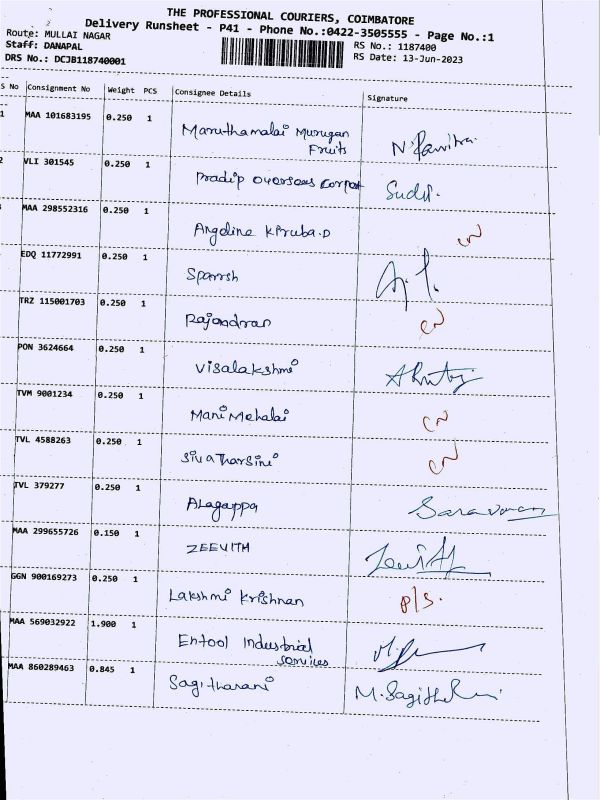 THE PROFESSIONAL COURIERS, COIMBATORE
Delivery Runsheet - P41 - Phone No.:0422-3505555 - Page No.:1
Route: MULLAI NAGAR
RS No.: 1187400
Staff: DANAPAL
RS Date: 13-Jun-2023
DRS No.: DCJB118740001
S No Consignment No Weight PCS Consignee Details Signature
1 MAA 101683195 0.250 1 Maruthamalai Murugan
Fruits N. Pavitra.
2 VLI 301545 0.250 1 Pradip overseas Corpot Sudip.
3 MAA 298552316 0.250 1 Angeline kiruba.D CN
EDQ 11772991 0.250 1 Sparrsh
TRZ 115001703 0.250 1 Rajandran CN
PON 3624664 0.250 1 Visalakshmi
TVM 9001234 0.250 1 Mani Mehalai CN
TVL 4588263 0.250 1 Sivatharsini CN
TVL 379277 0.250 1 ALagappa Saravanan
MAA 299655726 0.150 1 ZEEVITH
GGN 900169273 0.250 1 Lakshmi krishnan P/S.
MAA 569032922 1.900 1 Entool Industrial
Services
MAA 860289463 0.845 1 Sagitharani M. Sagitharani